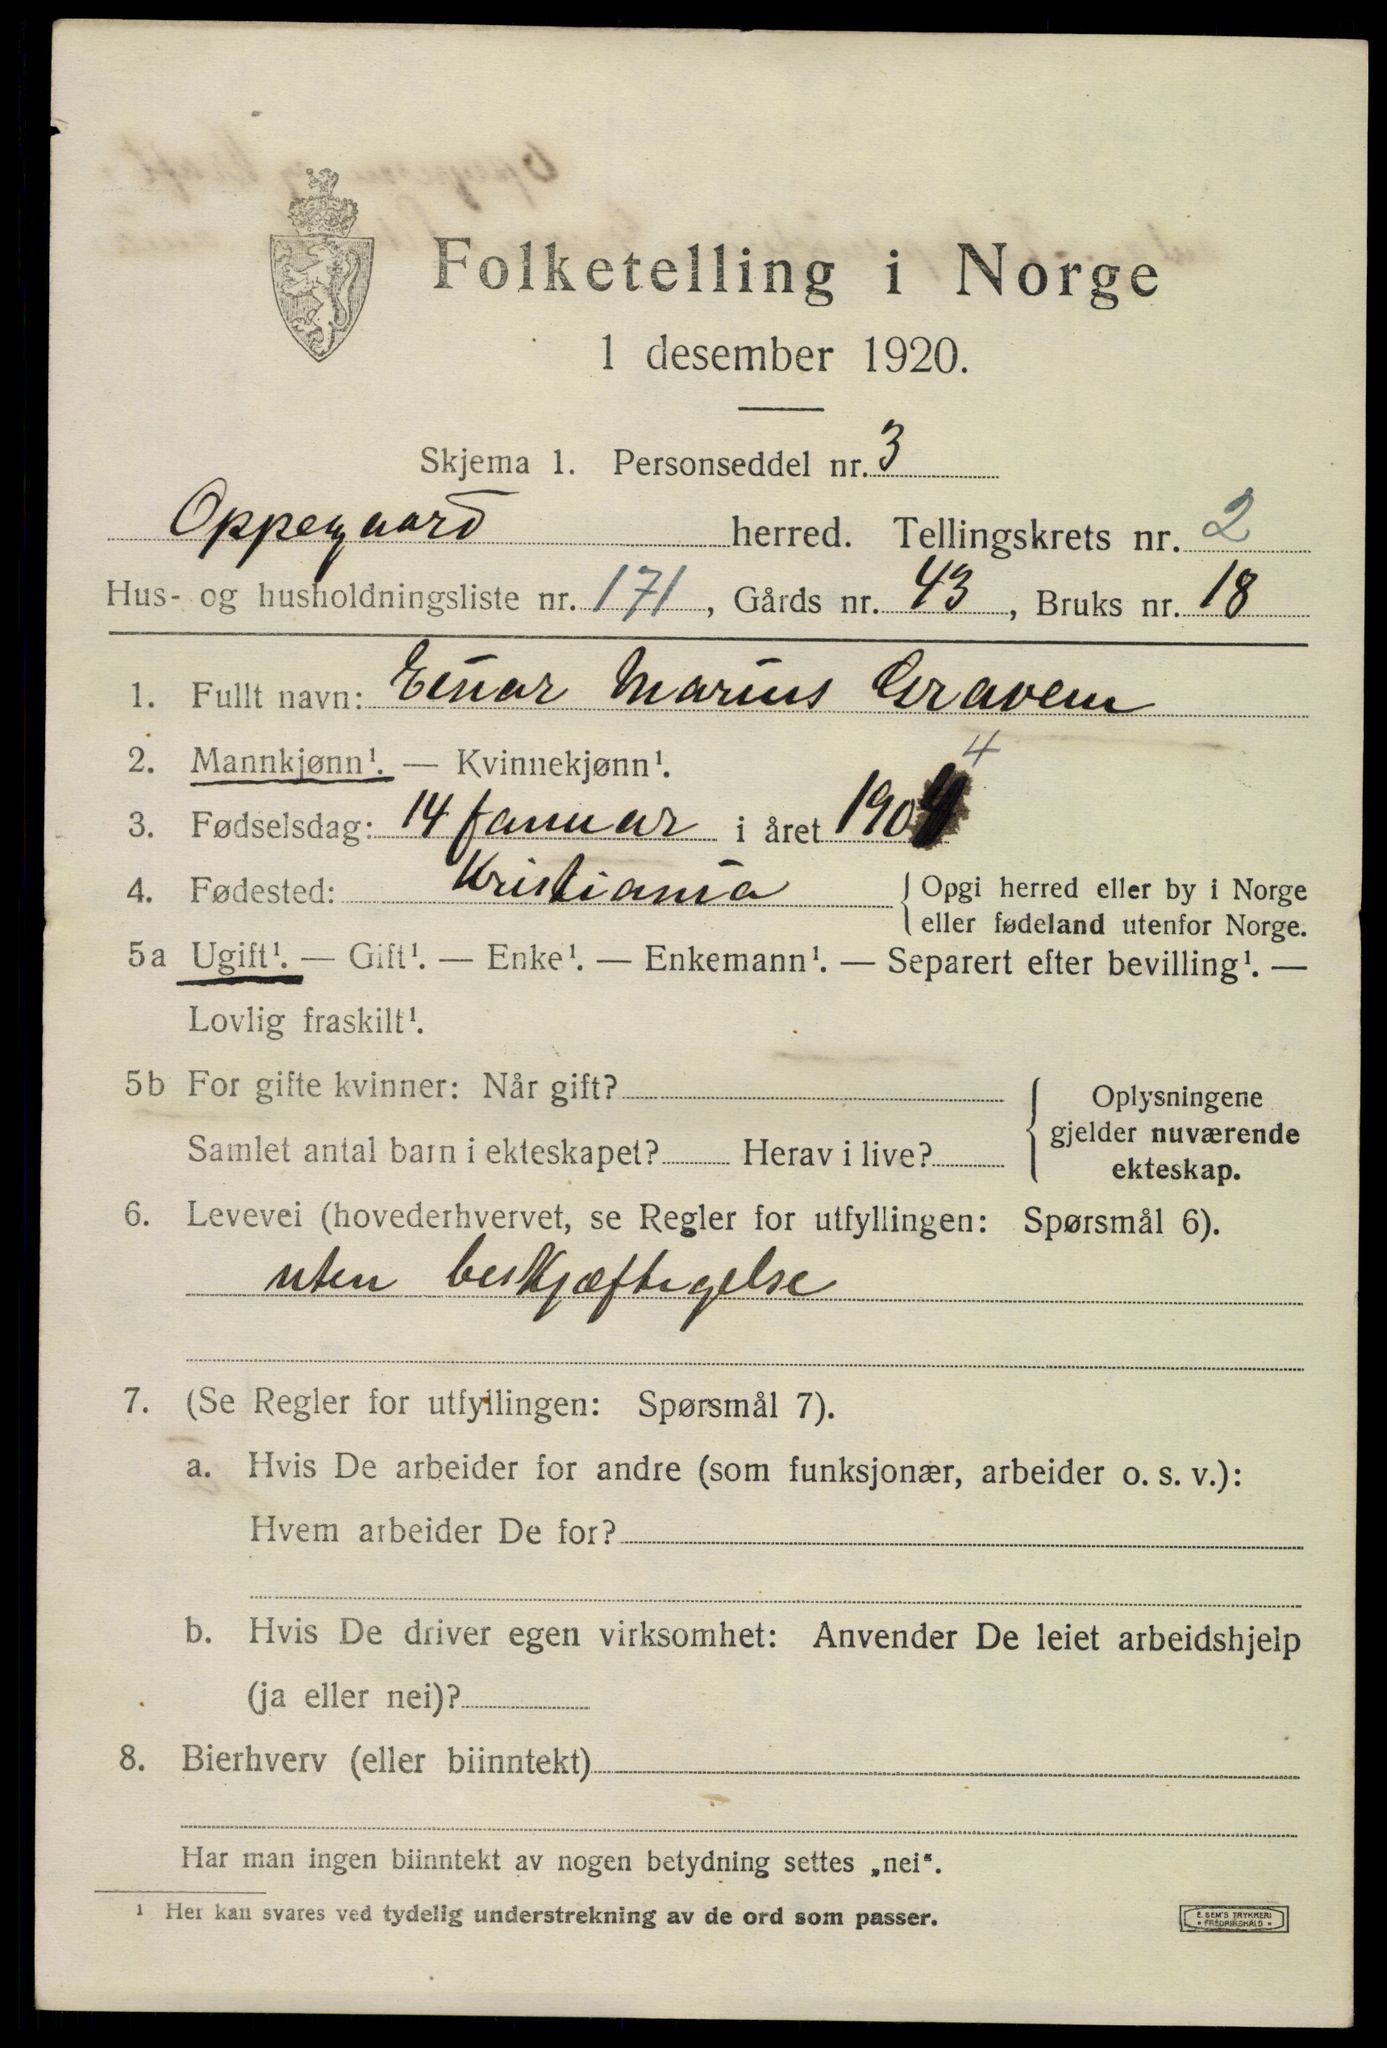 Folketelling i Norge
1 desember 1920.
Skjema 1. Personseddel nr. 3
Oppegaard herred. Tellingskrets nr. 2
Hus- og husholdningsliste nr. 171, Gårds nr. 43, Bruks nr. 18
1. Fullt navn: Einar Marius Gravem
2. Mannkjønn¹. — Kvinnekjønn¹.
4
3. Fødselsdag: 14 januar i året 1904
4. Fødested: Kristiania { Opgi herred eller by i Norge
eller fødeland utenfor Norge.
5a Ugift¹. — Gift¹. — Enke¹. — Enkemann¹. — Separert efter bevilling¹. —
Lovlig fraskilt¹.
5b For gifte kvinner: Når gift? { Oplysningene
gjelder nuværende
Samlet antal barn i ekteskapet? Herav i live?
ekteskap.
6. Levevei (hovederhvervet, se Regler for utfyllingen: Spørsmål 6).
uten beskjæftigelse
7. (Se Regler for utfyllingen: Spørsmål 7).
a. Hvis De arbeider for andre (som funksjonær, arbeider o. s. v.):
Hvem arbeider De for?
b. Hvis De driver egen virksomhet: Anvender De leiet arbeidshjelp
(ja eller nei)?
8. Bierhverv (eller biinntekt)
Har man ingen biinntekt av nogen betydning settes „nei“.
¹ Her kan svares ved tydelig understrekning av de ord som passer.
E. SEM'S TRYKKERI
* FREDRIKSHALD *